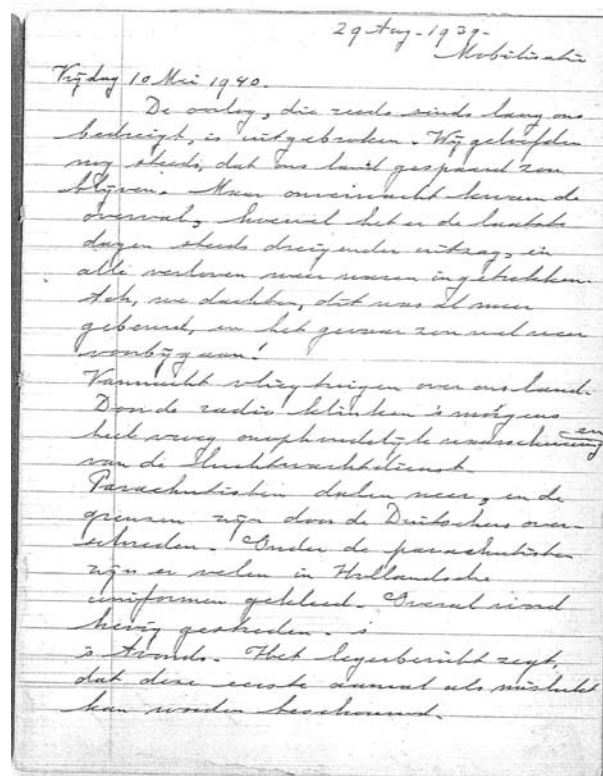 29 Aug - 1939 -
Mobilisatie
Vrijdag 10 Mei 1940.
De oorlog, die reeds sinds lang ons
bedreigt, is uitgebroken. Wij geloofden
nog steeds, dat ons land gespaard zou
blijven. Maar onverwacht kwam de
overval, hoewel het er de laatste
dagen steeds dreigender uitzag, en
alle verloven weer waren ingetrokken.
Ach, we dachten, dit was al meer
gebeurd, en het gevaar zou wel weer
voorbijgaan!
Vannacht vliegtuigen over ons land.
Door de radio klinken 's morgens
heel vroeg onophoudelijke waarschuwingen
van de Luchtwachtdienst.
Parachutisten dalen neer, en de
grenzen zijn door de Duitschers over-
schreden. Onder de parachutisten
zijn er velen in Hollandsche
uniformen gekleed. Overal wordt
hevig gestreden. s
's Avonds. Het legerbericht zegt,
dat deze eerste aanval als mislukt
kan worden beschouwd.